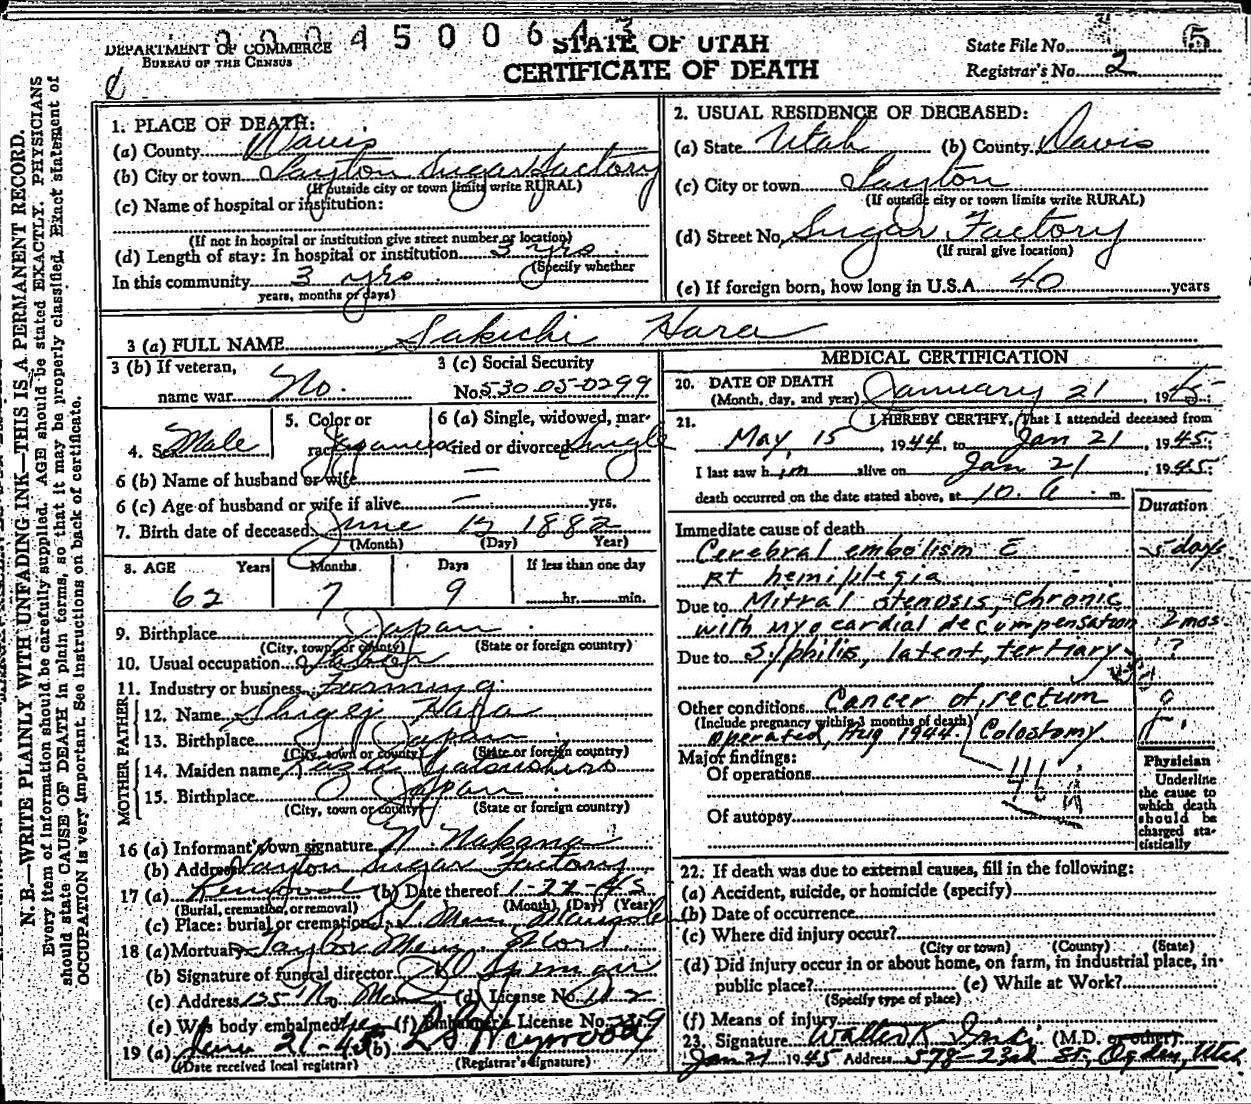 00450064 3
DEPARTMENT OF COMMERCE
BUREAU OF THE CENSUS
STATE OF UTAH
CERTIFICATE OF DEATH
State File No. 5
Registrar's No. 2
N. B.—WRITE PLAINLY WITH UNFADING INK—THIS IS A PERMANENT RECORD.
Every item of information should be carefully supplied. AGE should be stated EXACTLY. PHYSICIANS
should state CAUSE OF DEATH in plain terms, so that it may be properly classified. Exact statement of
OCCUPATION is very important. See instructions on back of certificate.
1. PLACE OF DEATH:
(a) County Davis
(b) City or town Layton Sugar Factory
(If outside city or town limits write RURAL)
(c) Name of hospital or institution:
(If not in hospital or institution give street number or location)
(d) Length of stay: In hospital or institution 3 yrs
(Specify whether
In this community 3 yrs
years, months or days)
2. USUAL RESIDENCE OF DECEASED:
(a) State Utah (b) County Davis
(c) City or town Layton
(If outside city or town limits write RURAL)
(d) Street No. Sugar Factory
(If rural give location)
(e) If foreign born, how long in U.S.A. 40 years
3 (a) FULL NAME Sakichi Hara
3 (b) If veteran,
name war No.
3 (c) Social Security
No. 530-05-0299
4. Sex Male
5. Color or
race Japanese
6 (a) Single, widowed, mar-
ried or divorced Single
6 (b) Name of husband or wife —
6 (c) Age of husband or wife if alive — yrs.
7. Birth date of deceased June 12 1882
(Month) (Day) Year)
8. AGE Years Months Days If less than one day
62 7 9 hr. min.
9. Birthplace Japan
(City, town, or county) (State or foreign country)
10. Usual occupation Labor
11. Industry or business Farming
FATHER
12. Name Shigeji Hara
13. Birthplace Japan
(City, town or county) (State or foreign country)
MOTHER
14. Maiden name
15. Birthplace Japan
(City, town or county) (State or foreign country)
16 (a) Informant's own signature N. Nakano
(b) Address Layton Sugar Factory
17 (a) Removal (b) Date thereof 1-22-45
(Burial, cremation, or removal) (Month) (Day) (Year)
(c) Place: burial or cremation S L Mem
18 (a) Mortuary
(b) Signature of funeral director
(c) Address 125 No. Main (d) License No. 112
(e) Was body embalmed? Yes (f) Embalmer's License No.
19 (a) Jan 21-45 (b) L S Heywood
(Date received local registrar) (Registrar's signature)
MEDICAL CERTIFICATION
20. DATE OF DEATH
(Month, day, and year) January 21, 1945
21. I HEREBY CERTIFY, That I attended deceased from
May, 15, 1944, to Jan 21, 1945;
I last saw him alive on Jan 21 1945;
death occurred on the date stated above, at 10. a. m.
Duration
Immediate cause of death
Cerebral embolism c̄ 5 days
Rt hemiplegia
Due to Mitral stenosis, chronic
with myocardial decompensation 2 mos
Due to Syphilis, latent, tertiary ?
Other conditions Cancer of rectum
(Include pregnancy within 3 months of death)
operated, Aug 1944. Colostomy
Major findings:
Of operations
46
Of autopsy
Physician
Underline
the cause to
which death
should be
charged sta-
tistically
22. If death was due to external causes, fill in the following:
(a) Accident, suicide, or homicide (specify)
(b) Date of occurrence
(c) Where did injury occur?
(City or town) (County) (State)
(d) Did injury occur in or about home, on farm, in industrial place, in
public place? (e) While at Work?
(Specify type of place)
(f) Means of injury
23. Signature Walter K (M.D. or other)
Jan 21 1945 Address 578-23rd St., Ogden, Utah